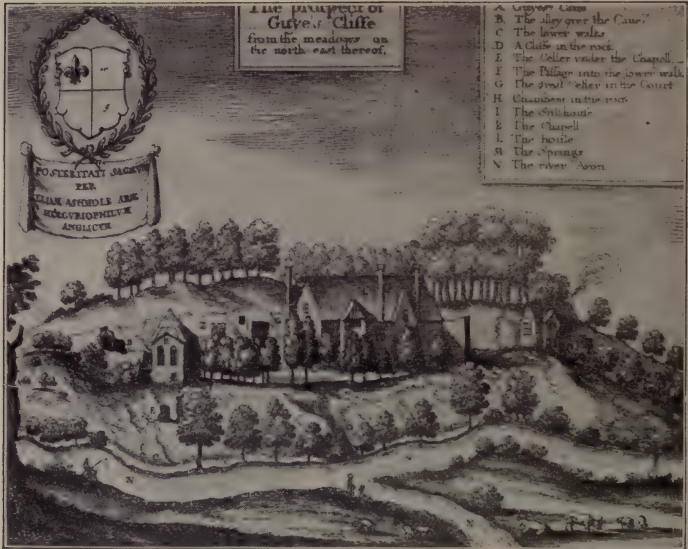 The prospect of
Guye's Cliffe
from the meadows on
the north east thereof.
A Guyes Cave
B. The alley over the Cave
C The lower walks
D A Cliffe in the rock
E The Celler under the Chapell
F The Passage into the lower walk
G The great Celler in the Court
H Chambers in the rock
I The
K The Chapell
L The house
M The Springs
N The river Avon
POSTERITATI SACRUM
PER
ELIAM ASHMOLE ARM
MERCVRIOPHILVM
ANGLICVM
N
N